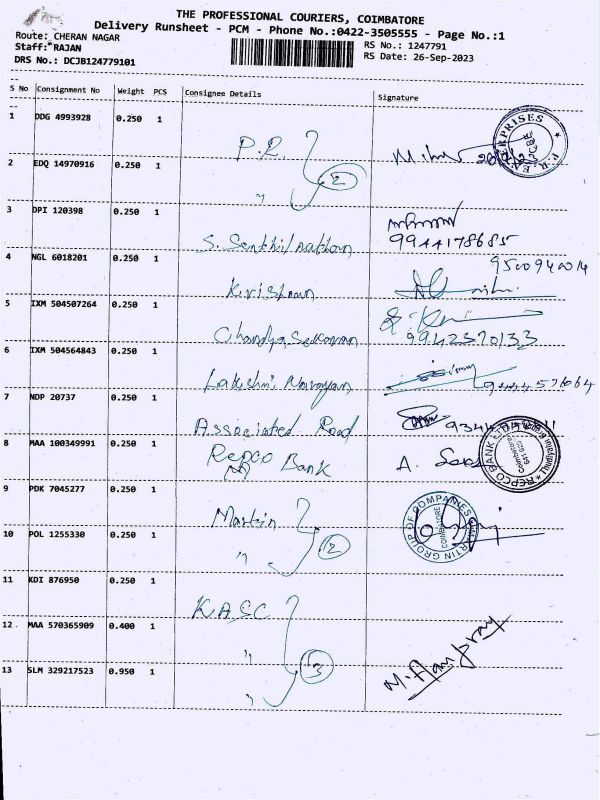 THE PROFESSIONAL COURIERS, COIMBATORE
Delivery Runsheet - PCM - Phone No.:0422-3505555 - Page No.:1
Route: CHERAN NAGAR
Staff: RAJAN
RS No.: 1247791
DRS No.: DCJB124779101
RS Date: 26-Sep-2023
S No Consignment No Weight PCS Consignee Details Signature
1 DDG 4993928 0.250 1 P.R.
2 EDQ 14970916 0.250 1 " 2
3 DPI 120398 0.250 1 S. Senthil
9944178685
4 NGL 6018201 0.250 1 Krishnan
9500940014
5 IXM 504507264 0.250 1 Chandra Sekaran
9942370133
6 IXM 504564843 0.250 1 Lakshmi Narayan
7 NDP 20737 0.250 1 Associated Road
8 MAA 100349991 0.250 1 Repco Bank A.
REPCO BANK
Coimbatore
9 PDK 7045277 0.250 1 Martin
MARTIN GROUP OF COMPANIES
COIMBATORE
10 POL 1255330 0.250 1 " 2
11 KDI 876950 0.250 1 KASC
12 MAA 570365909 0.400 1 "
13 SLM 329217523 0.950 1 " 3